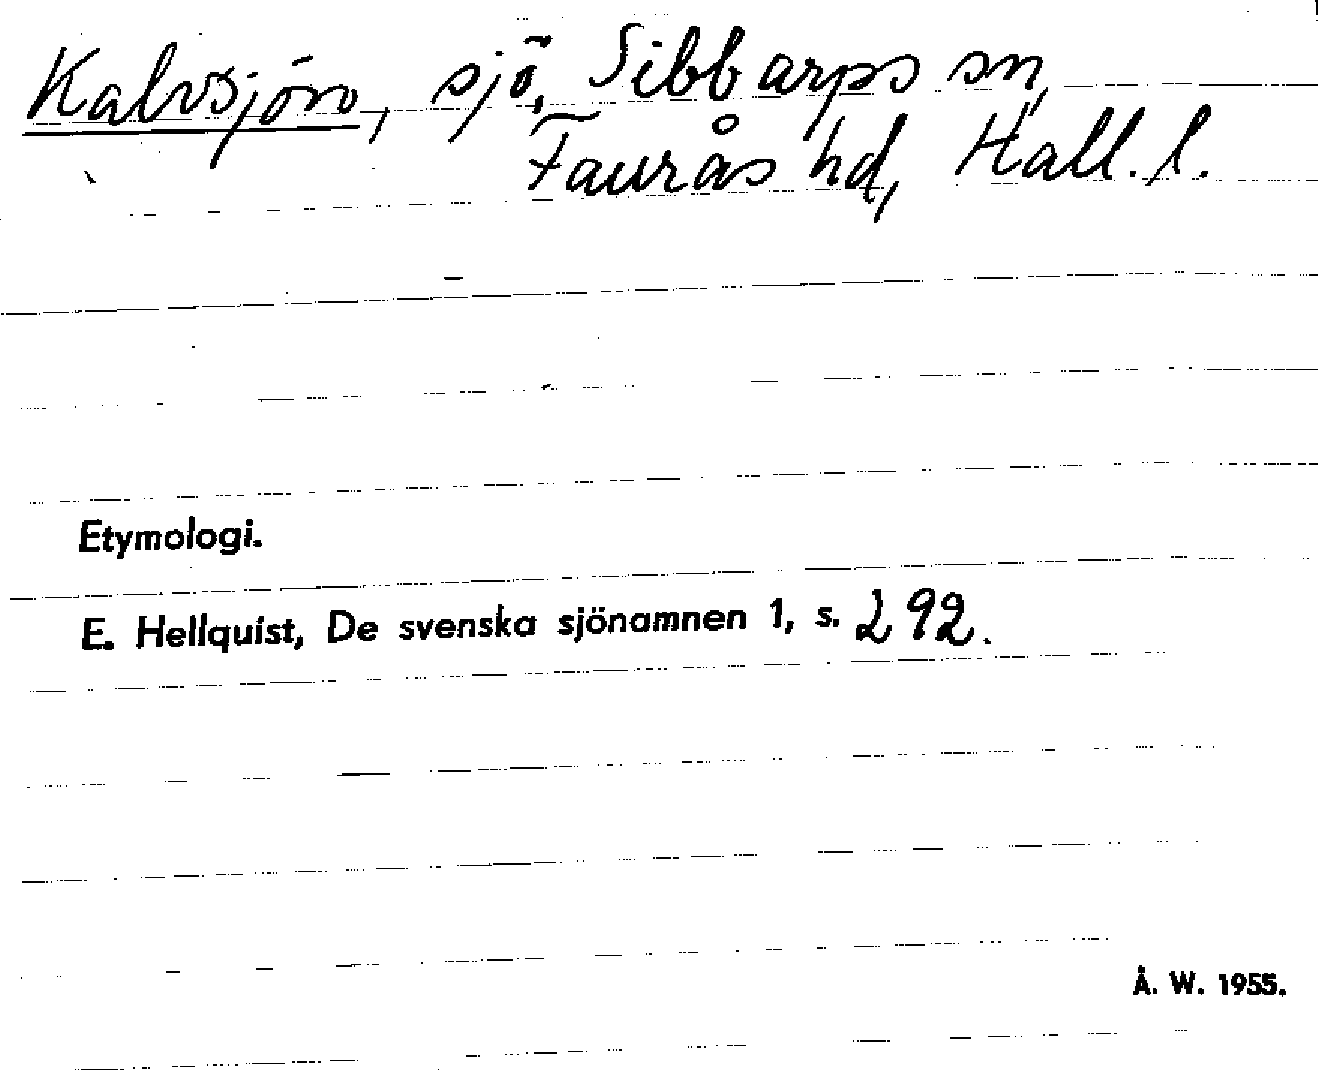 Kalvsjön, sjö, Sibbarps sn,
Faurås hd, Hall. l.
Etymologi.
E. Hellquist, De svenska sjönamnen 1, s. 292.
Å. W. 1955.